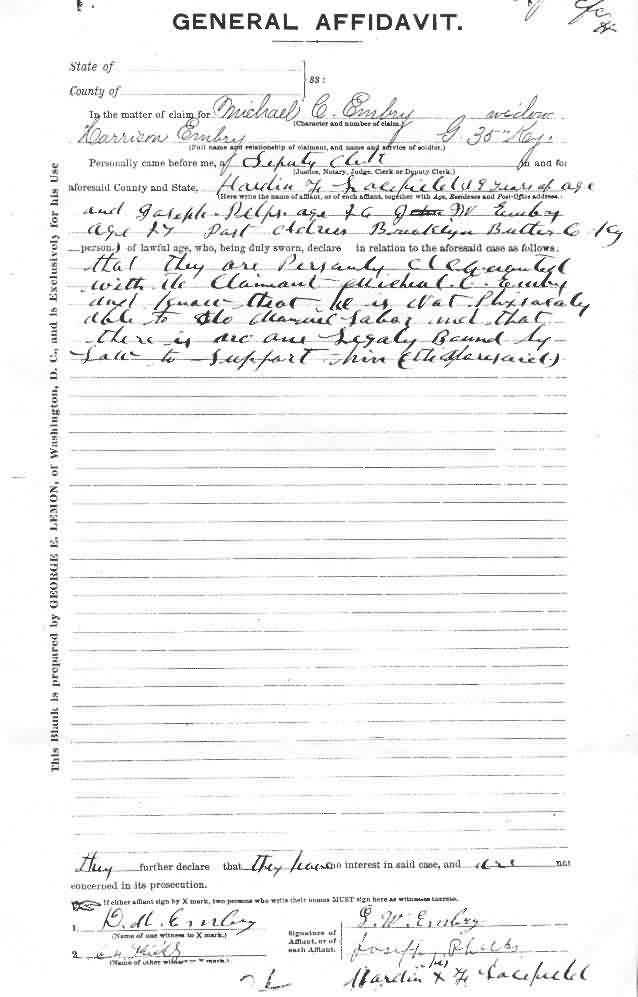 GENERAL AFFIDAVIT.
State of
County of
ss:
In the matter of claim for Michael C. Embry widow
(Character and number of claim.)
Harrison Embry G 35" Ky.
(Full name and relationship of claimant, and name and service of soldier.)
Personally came before me, a Deputy Clerk in and for
(Justice, Notary, Judge, Clerk or Deputy Clerk.)
aforesaid County and State, Hardin F. years of age
(Here write name of affiant, or of each affiant, together with Age, Residence and Post-Office address.)
and Joseph Phelps age G W Embry
age Post Address Brooklyn Butler Co Ky
person s of lawful age, who, being duly sworn, declare in relation to the aforesaid case as follows:
that they are
with the Claimant Micheal C. Embry
and know that he is Not
able to do Manuel Labor and that
there is no one Legaly Bound by
Law to Support him
This Blank is prepared by GEORGE E. LEMON, of Washington, D. C., and is Exclusively for his Use
they further declare that they have no interest in said case, and are not
concerned in its prosecution.
If either affiant sign by X mark, two persons who write their names MUST sign here as witnesses thereto.
1. D. M. Embry
(Name of one witness to X mark.)
2.
(Name of other witness to X mark.)
Signature of
Affiant, or of
each Affiant.
G. W. Embry
Joseph Phelps
Hardin X F.